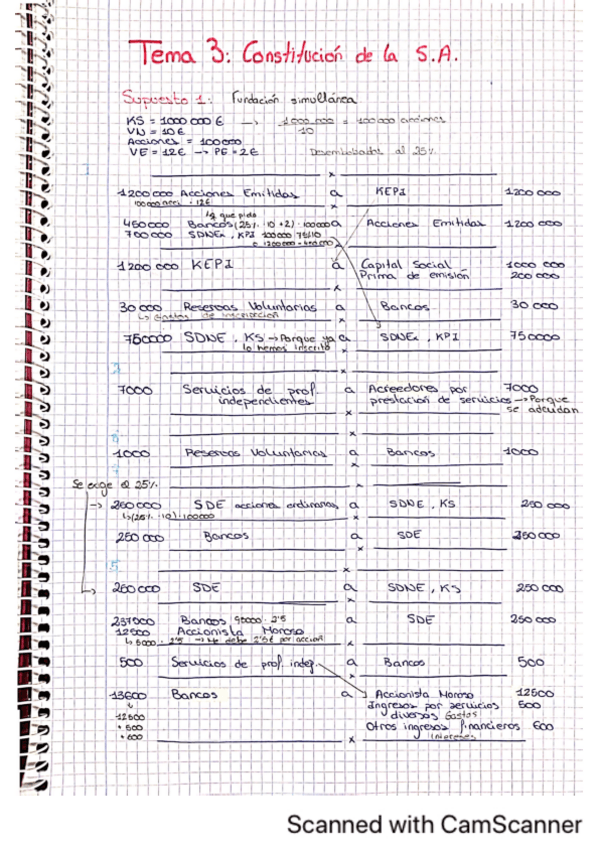 Tema 3: Constitución de la S.A.
Supuesto 1: Fundación simultánea
KS = 1000 000 € → 1 000 000 / 10 = 100 000 acciones
VN = 10 €
Acciones = 100 000
VE = 12€ → PE = 2€ Desembolsadas al 25%
1
1 200 000 Acciones Emitidas a KEPI 1200 000
100 000 acci. · 12€
lo que pido
450000 Bancos (25% · 10 + 2) · 100000 a Acciones Emitidas 1.200 000
700 000 SDNEx, KPI 100000 · 75%10
o 1200 000 - 450 000
1200 000 KEPI a Capital Social 1000 000
Prima de emisión 200 000
30 000 Reservas Voluntarias a Bancos 30 000
↳ Gastos de inscripción
750000 SDNE, KS → Porque ya lo hemos inscrito a SDNEx, KPI 750000
7000 Servicios de prof. independientes a Acreedores por prestación de servicios 7000
→ Porque se adeudan
1000 Reservas Voluntarias a Bancos 1000
Se exige el 25%
→ 250000 SDE acciones ordinarias a SDNE, KS 250 000
↳ (25% · 10) · 100000
250 000 Bancos a SDE 250 000
5
250 000 SDE a SDNE, KS 250 000
237500 Bancos 95000 · 2'5 a SDE 250 000
12500 Accionista Moroso
↳ 5000 · 2'5 → Me debe 2'5€ por acción
500 Servicios de prof. indep. a Bancos 500
13600 Bancos a Accionista Moroso 12500
↓ Ingresos por servicios diversos Gastos 500
12500 Otros ingresos financieros 600
+ 500 Intereses
+ 600
Scanned with CamScanner